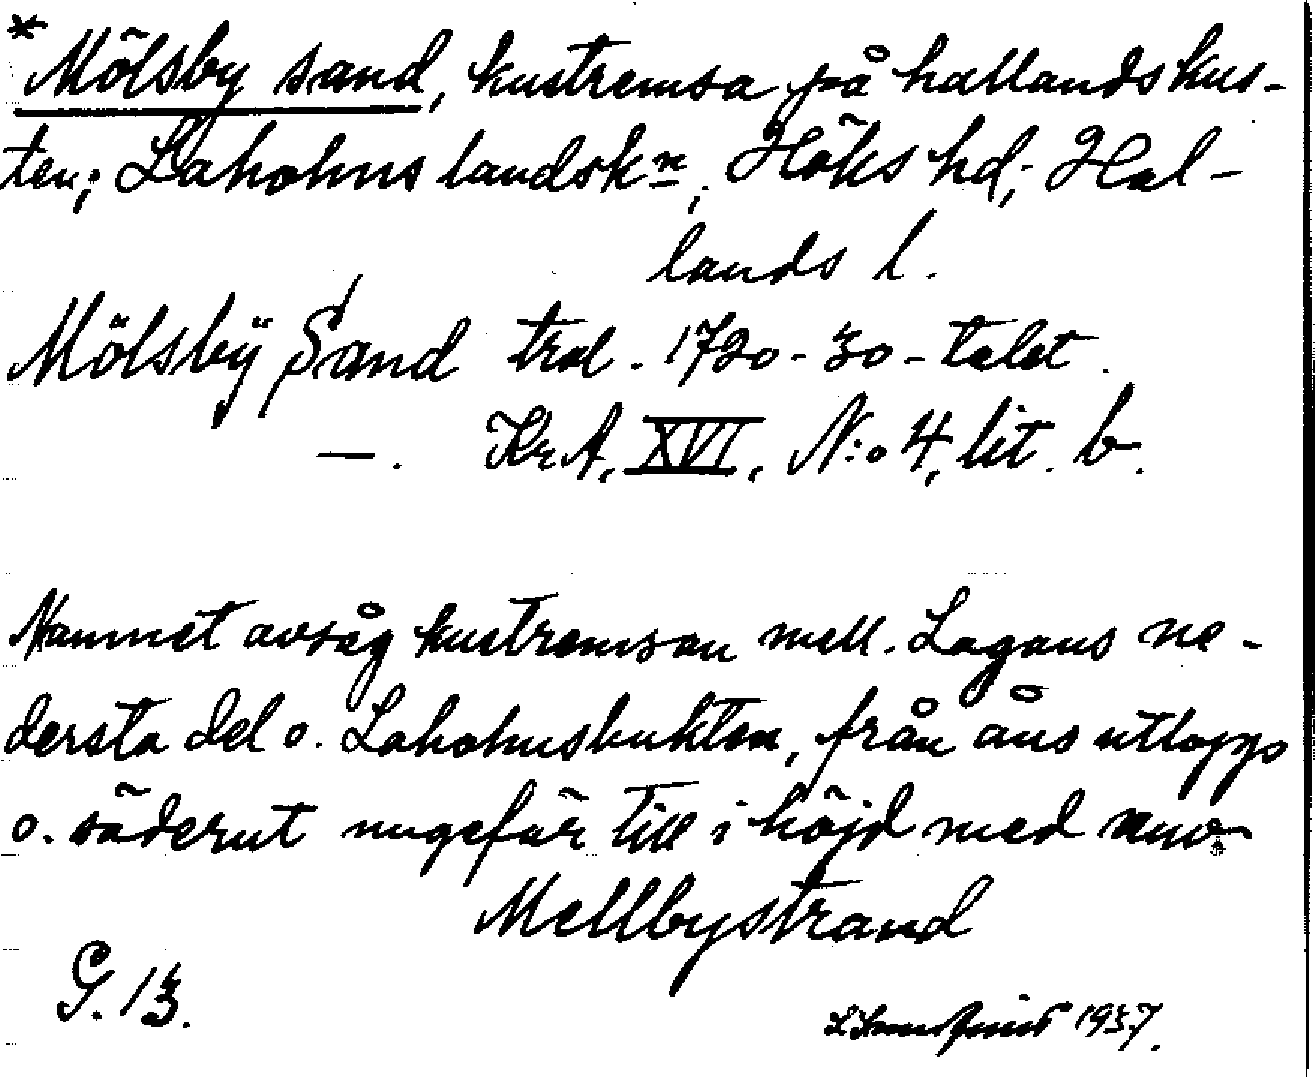 * Mölsby sand, kustremsa på hallandskus-
ten; Laholms landskn, Höks hd; Hal-
lands l.
Mölsbÿ Sand trol. 1720-30-talet.
—. KrA, XVI, N:o 4, lit. b.
Namnet avsåg kustremsan mell. Lagans ne-
dersta del o. Laholmsbukten, från åns utlopp
o. söderut ungefär till i höjd med nuv.
Mellbystrand
G. 13.
1937.